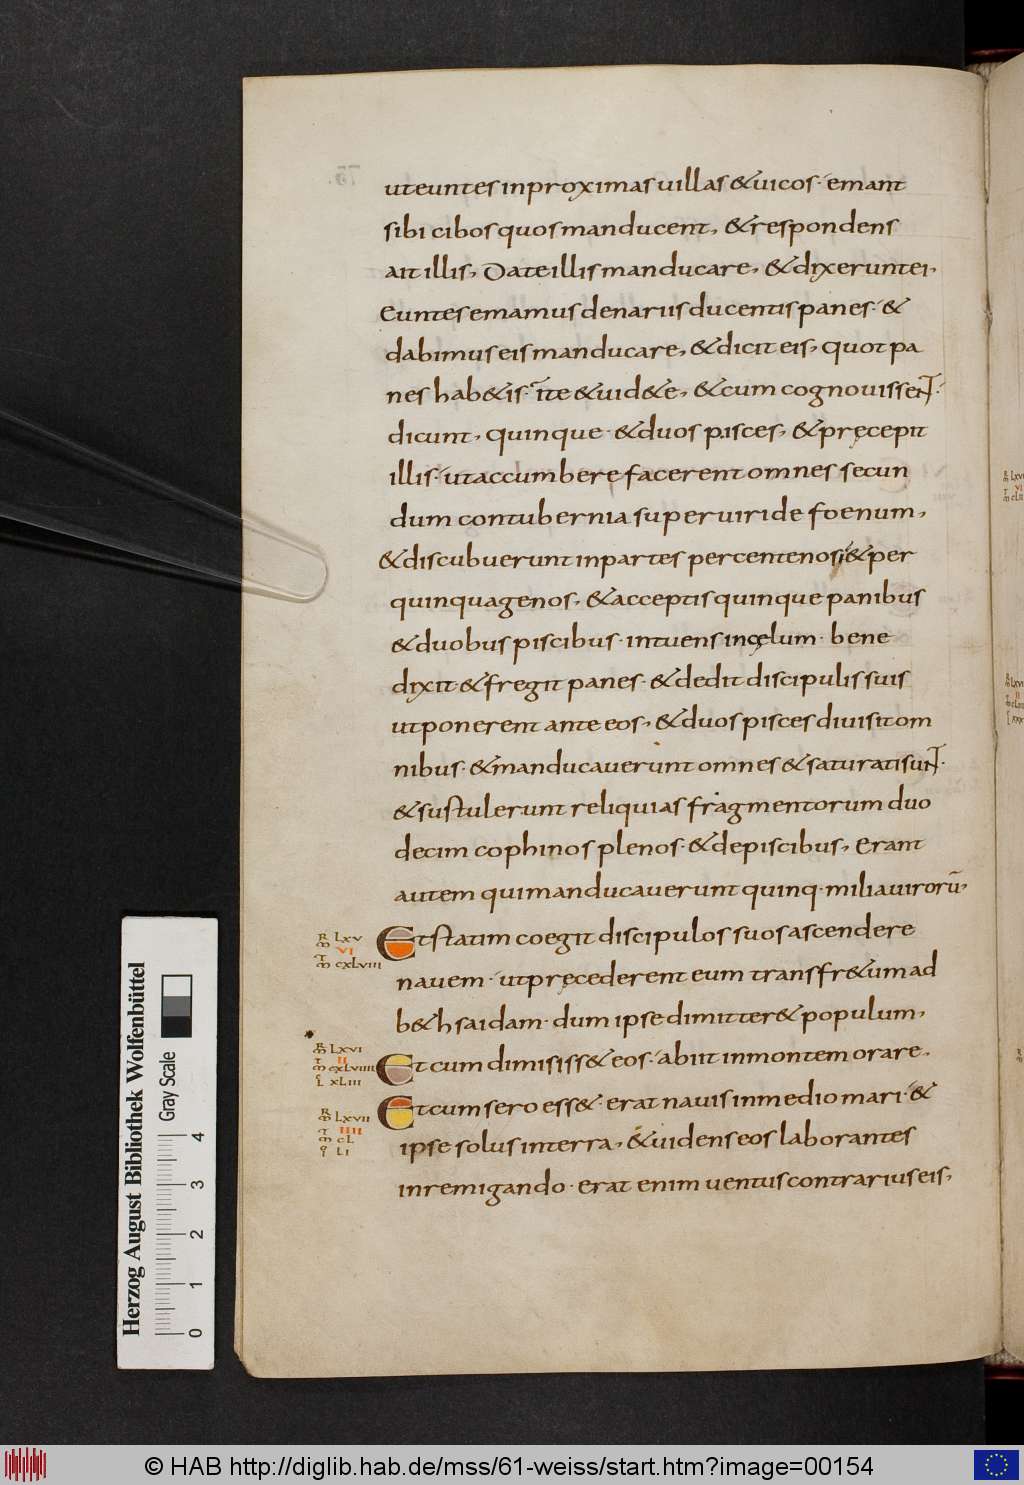 ut euntes in proximas uillas & uicos· emant
sibi cibos quos manducent, & respondens
ait illis, Date illis manducare, & dixerunt ei,
Euntes emamus denariis ducentis panes· &
dabimus eis manducare, & dicit eis, quot pa
nes hab&is· ite & uid&e, & cum cognouissent·
dicunt, quinque· & duos pisces, & pręcepit
illis· ut accumbere facerent omnes secun
dum contubernia super uiride foenum,
& discubuerunt in partes per centenos· & per
quinquagenos, & acceptis quinque panibus
& duobus piscibus· intuens in cęlum· bene
dixit· & fregit panes· & dedit discipulis suis
ut ponerent ante eos, & duos pisces diuisit om
nibus· & manducauerunt omnes & saturati sunt·
& sustulerunt reliquias fragmentorum duo
decim cophinos plenos· & de piscibus, Erant
autem qui manducauerunt quinq· milia uirorū,
Et statim coegit discipulos suos ascendere
nauem· ut pręcederent eum transfr&um ad
b&hsaidam· dum ipse dimitter& populum,
Et cum dimisiss& eos· abiit in montem orare,
Et cum sero ess&· erat nauis in medio mari· &
ipse solus in terra, & uidens eos laborantes
in remigando· erat enim uentus contrarius eis,
LXV
VI
CXLVIII
LXVI
II
CXLVIIII
XLIII
LXVII
IIII
CL
LI
Herzog August Bibliothek Wolfenbüttel
Gray Scale
0 1 2 3 4
© HAB http://diglib.hab.de/mss/61-weiss/start.htm?image=00154